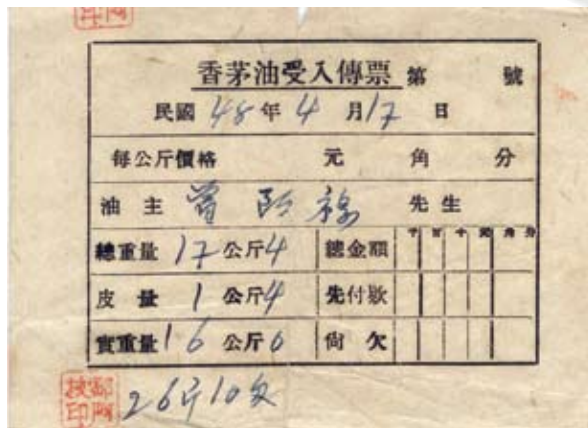 香茅油受入傳票 第 號
民國 48 年 4 月 17 日
每公斤價格 元 角 分
油主 曾 先生
總重量 17 公斤 4 總金額 千 百 十 元 角 分
皮量 1 公斤 4 先付款
實重量 16 公斤 0 尚欠
26斤10